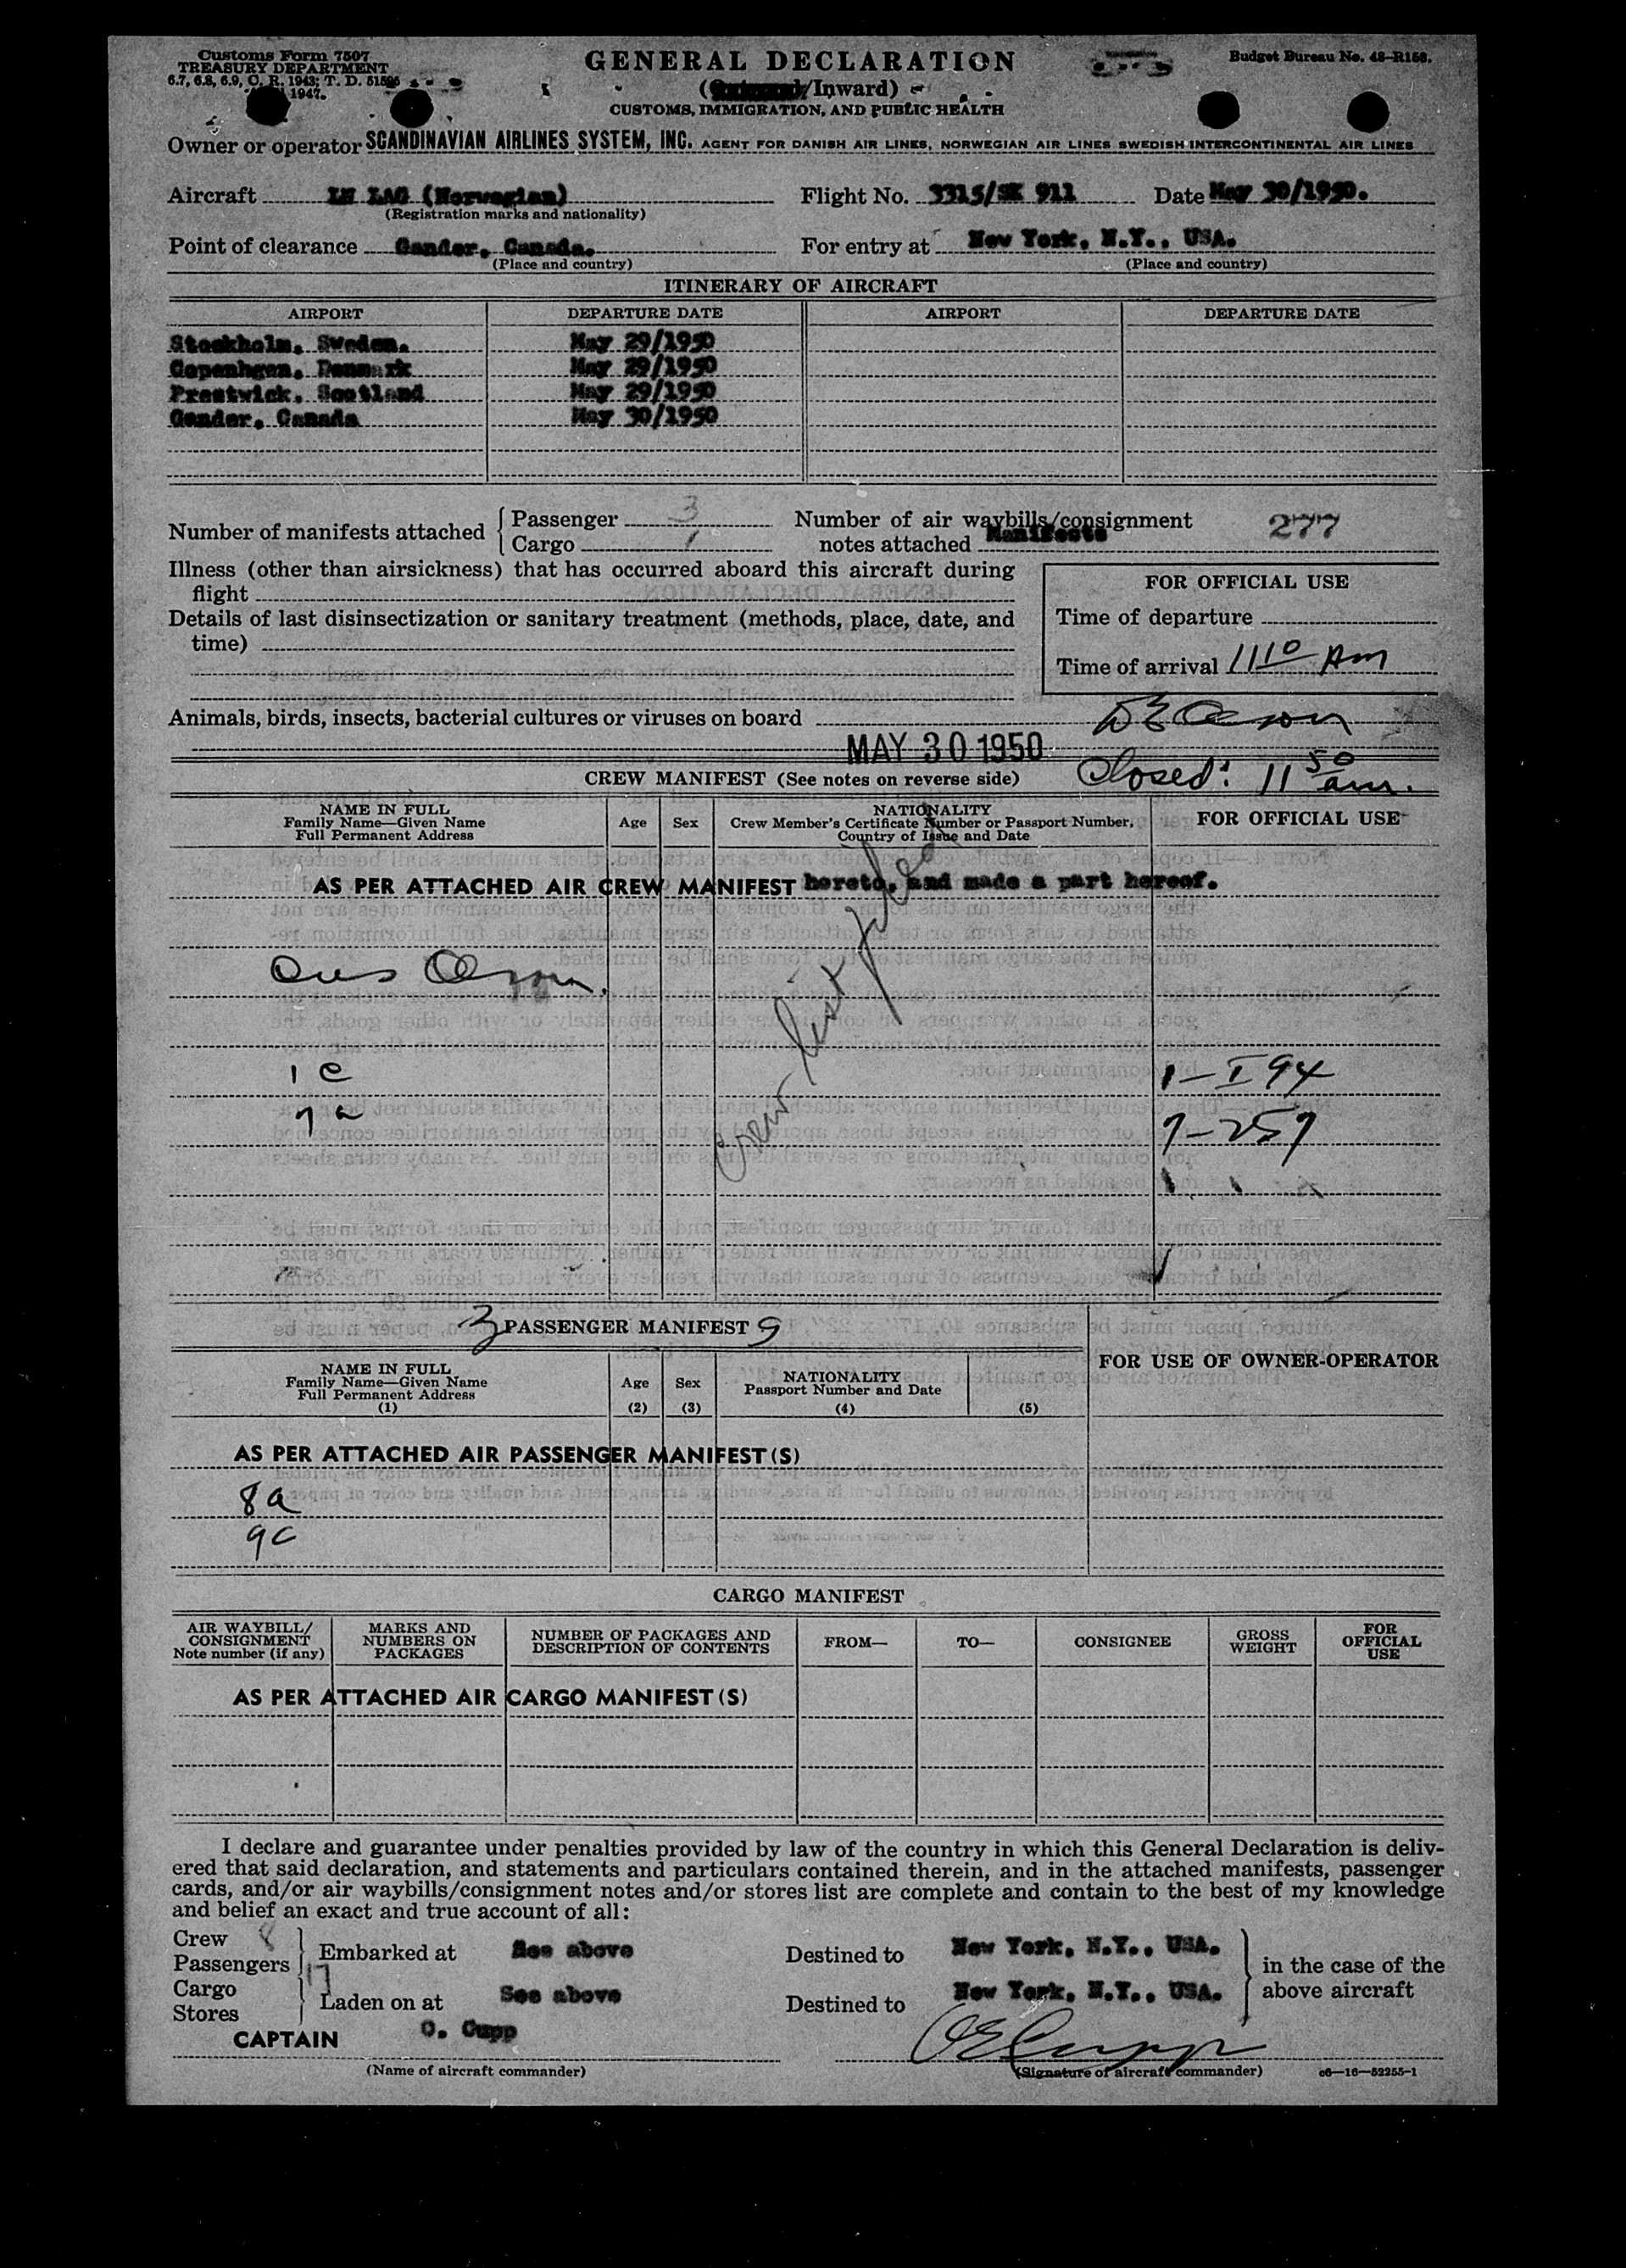 Customs Form 7507
TREASURY DEPARTMENT
6.7, 6.8, 6.9, C. R. 1943; T. D. 51595
1947.
GENERAL DECLARATION
(Outward/Inward)
CUSTOMS, IMMIGRATION, AND PUBLIC HEALTH
Budget Bureau No. 48-R158.
Owner or operator SCANDINAVIAN AIRLINES SYSTEM, INC. AGENT FOR DANISH AIR LINES, NORWEGIAN AIR LINES SWEDISH INTERCONTINENTAL AIR LINES
Aircraft LN LAG (Norwegian) Flight No. 3315/SK 911 Date May 30/1950.
(Registration marks and nationality)
Point of clearance Gander, Canada. For entry at New York, N.Y., USA.
(Place and country) (Place and country)
ITINERARY OF AIRCRAFT
AIRPORT DEPARTURE DATE AIRPORT DEPARTURE DATE
Stockholm, Sweden. May 29/1950
Copenhgen, Denmark May 29/1950
Prestwick, Scotland May 29/1950
Gander, Canada May 30/1950
Number of manifests attached { Passenger 3 Number of air waybills/consignment 277
Cargo 1 notes attached Manifests
Illness (other than airsickness) that has occurred aboard this aircraft during
flight
Details of last disinsectization or sanitary treatment (methods, place, date, and
time)
FOR OFFICIAL USE
Time of departure
Time of arrival 11 10 AM
Animals, birds, insects, bacterial cultures or viruses on board
MAY 30 1950
CREW MANIFEST (See notes on reverse side) Closed: 11 50 am.
NAME IN FULL
Family Name—Given Name
Full Permanent Address
Age Sex
NATIONALITY
Crew Member's Certificate Number or Passport Number,
Country of Issue and Date
FOR OFFICIAL USE
AS PER ATTACHED AIR CREW MANIFEST hereto, and made a part hereof.
Crew list filed
1 c 1-I 94
7 a 7-257
3 PASSENGER MANIFEST 9
NAME IN FULL
Family Name—Given Name
Full Permanent Address
(1)
Age
(2)
Sex
(3)
NATIONALITY
Passport Number and Date
(4) (5)
FOR USE OF OWNER-OPERATOR
AS PER ATTACHED AIR PASSENGER MANIFEST(S)
8a
9c
CARGO MANIFEST
AIR WAYBILL/
CONSIGNMENT
Note number (if any)
MARKS AND
NUMBERS ON
PACKAGES
NUMBER OF PACKAGES AND
DESCRIPTION OF CONTENTS
FROM—
TO—
CONSIGNEE
GROSS
WEIGHT
FOR
OFFICIAL
USE
AS PER ATTACHED AIR CARGO MANIFEST(S)
I declare and guarantee under penalties provided by law of the country in which this General Declaration is deliv-
ered that said declaration, and statements and particulars contained therein, and in the attached manifests, passenger
cards, and/or air waybills/consignment notes and/or stores list are complete and contain to the best of my knowledge
and belief an exact and true account of all:
Crew 8
Passengers 17
Embarked at See above Destined to New York, N.Y., USA.
Cargo
Stores
Laden on at See above Destined to New York, N.Y., USA.
in the case of the
above aircraft
CAPTAIN O. Cupp
OE Cupp
(Name of aircraft commander) (Signature of aircraft commander) c6—16—52255-1